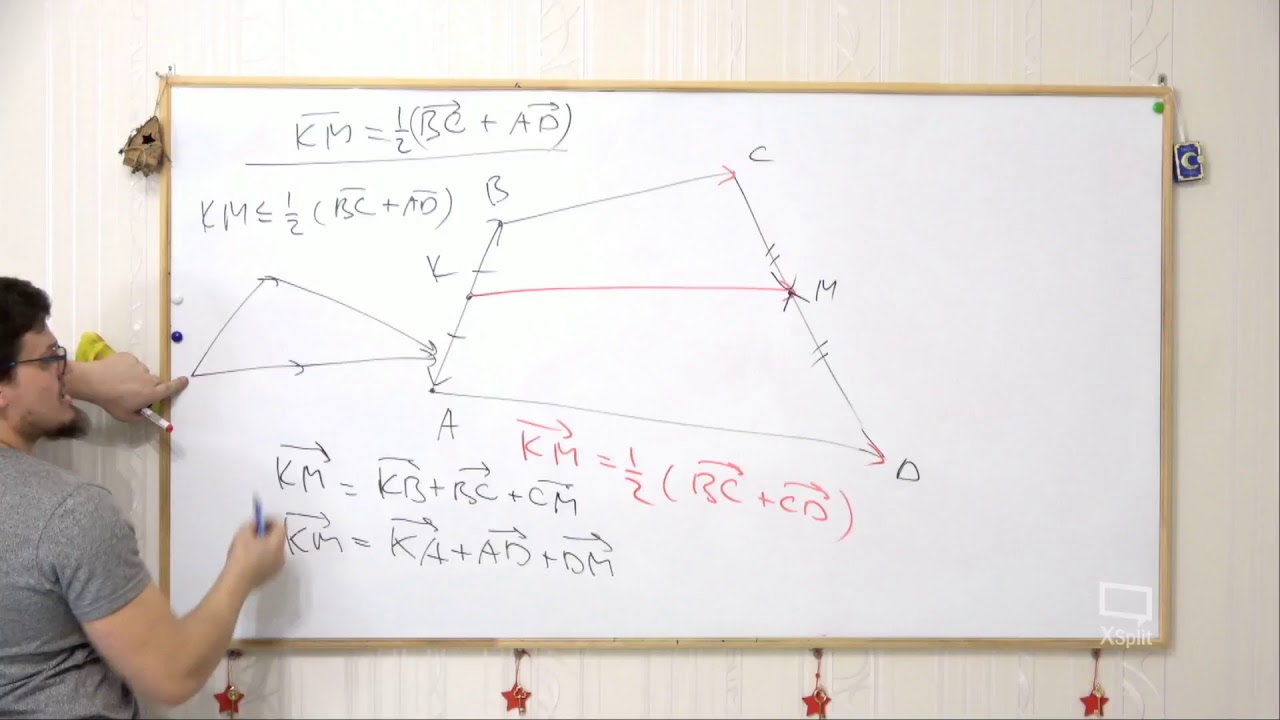 KM = 1/2 (BC + AD)
KM ≤ 1/2 (BC + AD)
C
B
K
M
A
D
KM = 1/2 (BC + CD)
KM = KB + BC + CM
KM = KA + AD + DM
XSplit